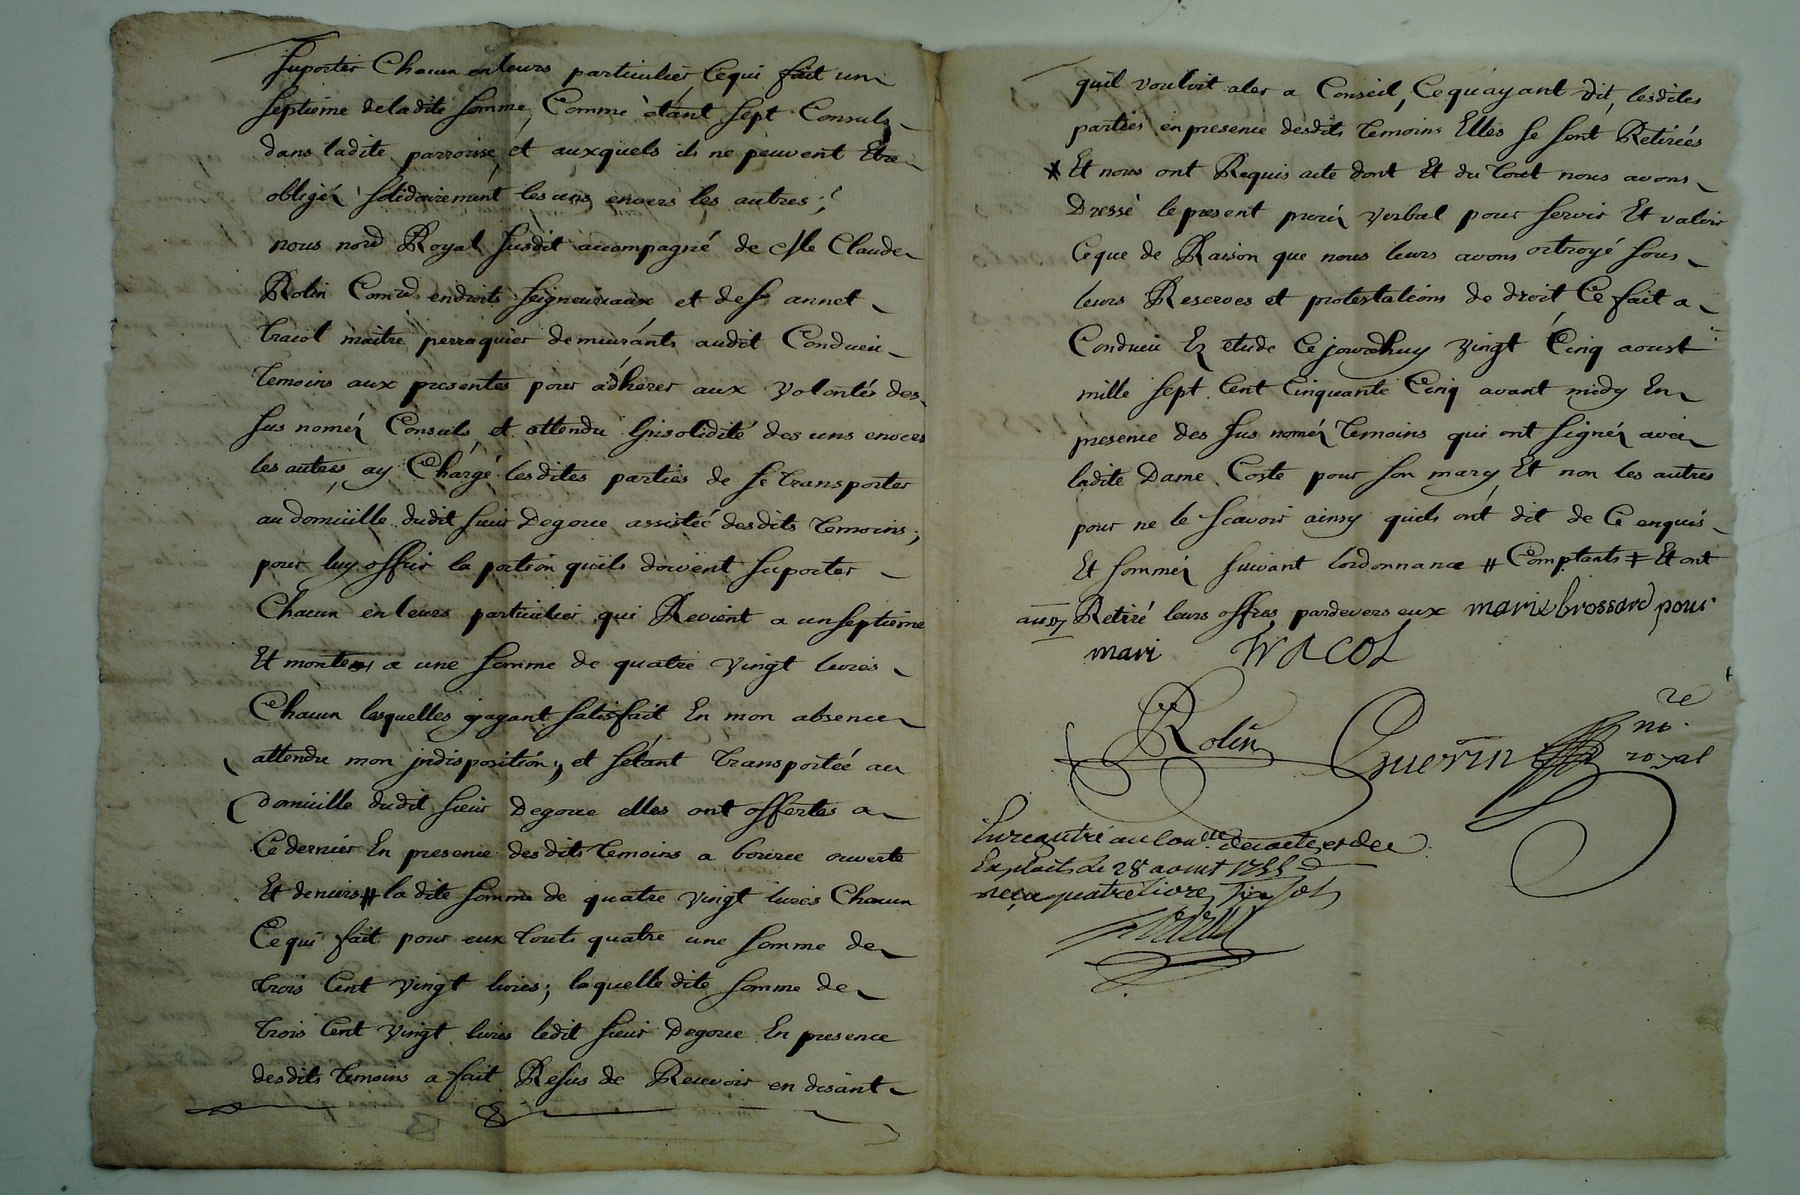 suporter Chacun en leurs particulier Cequi fait un
septieme deladite somme, Comme étant sept Consuls
dans ladite parroisse, et auxquels ils ne peuvent Etre
obligéz solidairement les uns envers les autres;
nous nore Royal susdit accompagné de Me Claude
Rolin Comre endroits seigneuriaux et de sr annet
tracol maitre perraquier demeurants audit Condrieu
temoins aux presentes pour adherer aux volontés des
sus noméz Consuls, et attendu linsolidité des uns envers
les autres, ay Chargé lesdites parties de se transporter
au domicille dudit sieur Degoue assistée desdits temoins,
pour luy offrir la portion quils doivent suporter
Chacun en leurs particulier qui Revient a un septieme
Et monte a une somme de quatre vingt livres
Chacun lesquelles yayant satisfait En mon absence
attendu mon jndisposition, et sétant transportée au
domicille dudit sieur Degoue elles ont offertes a
Ce dernier En presence desdits temoins a bource ouverte
Et deniers # ladite somme de quatre vingt livres Chacun
Ce qui fait pour eux touts quatre une somme de
trois Cent vingt livres; laquelle dite somme de
trois Cent vingt livres ledit sieur Degoue En presence
desdits temoins a fait Refus de Recevoir en disant
quil vouloit aler a Conseil, Cequayant dit, lesdites
parties en presence desdits temoins Elles se sont Retirées
Et nous ont Requis acte dont Et du tout nous avons
Dressé le present procéz verbal pour servir Et valoir
Ceque de Raison que nous leurs avons octroyé sous
leurs Reserves et protestations de droit Ce fait a
Condrieu Ez etude Cejourdhuy vingt Cinq aoust
mille sept Cent Cinquante Cinq avant midy En
presence des sus noméz temoins qui ont signéz avec
ladite Dame Coste pour son mary Et non les autres
pour ne le scavoir ainsy quils ont dit de Ce enquis
Et somméz suivant lordonnance # Comptants ‡ Et ont
aussy Retiré leurs offres pardevers eux marie brossard pour
mari tracol
Rolin Guerin nore
royal
Enreg. au Con
Exploits Le 28 aout 1755
reçu quatre livre six sols